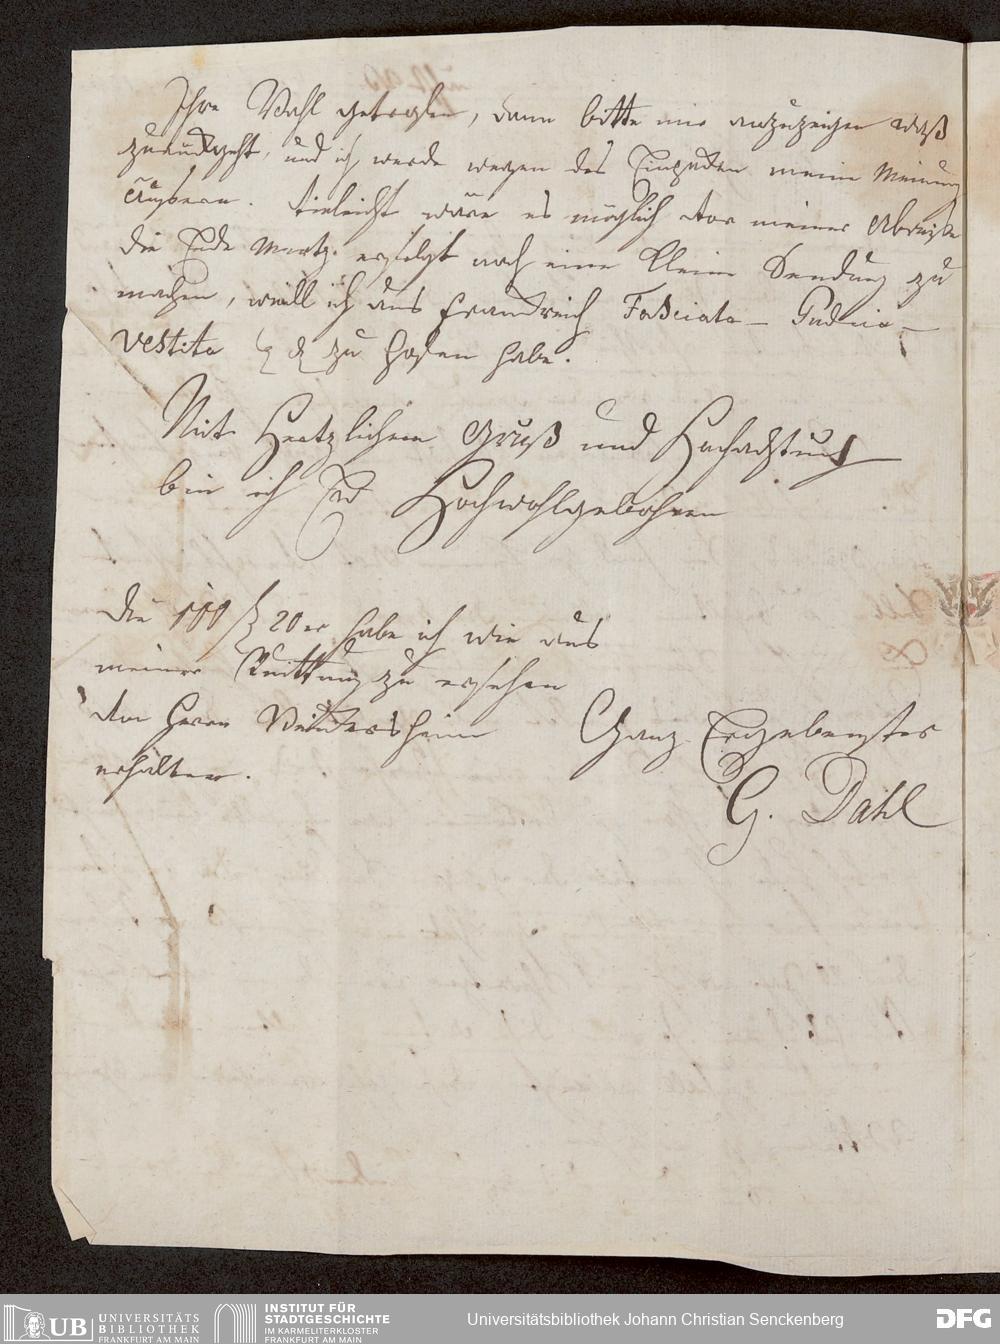 Ihre Wahl getrofen, dann bitte mir anzuzeigen waß
zurückgeht, und ich werde wegen des meine Meinung
äußern. Vieleicht wäre es möglich vor meiner Abreise
die Ende Mertz. erfolgt noch eine kleine Sendung zu
machen, weill ich aus Franckreich Fasciata – Pudica –
Vestita & & zu hofen habe.
Mit Hertzlichem Gruß und Hochachtung
bin ich Ew Hochwohlgebohren
die 100 f 20er habe ich wie aus
meiner Quittung zu ersehen
von Herrn
erhalten.
Ganz Ergebenster
G. Dahl
UB UNIVERSITÄTS
BIBLIOTHEK
FRANKFURT AM MAIN
INSTITUT FÜR
STADTGESCHICHTE
IM KARMELITERKLOSTER
FRANKFURT AM MAIN
Universitätsbibliothek Johann Christian Senckenberg
DFG